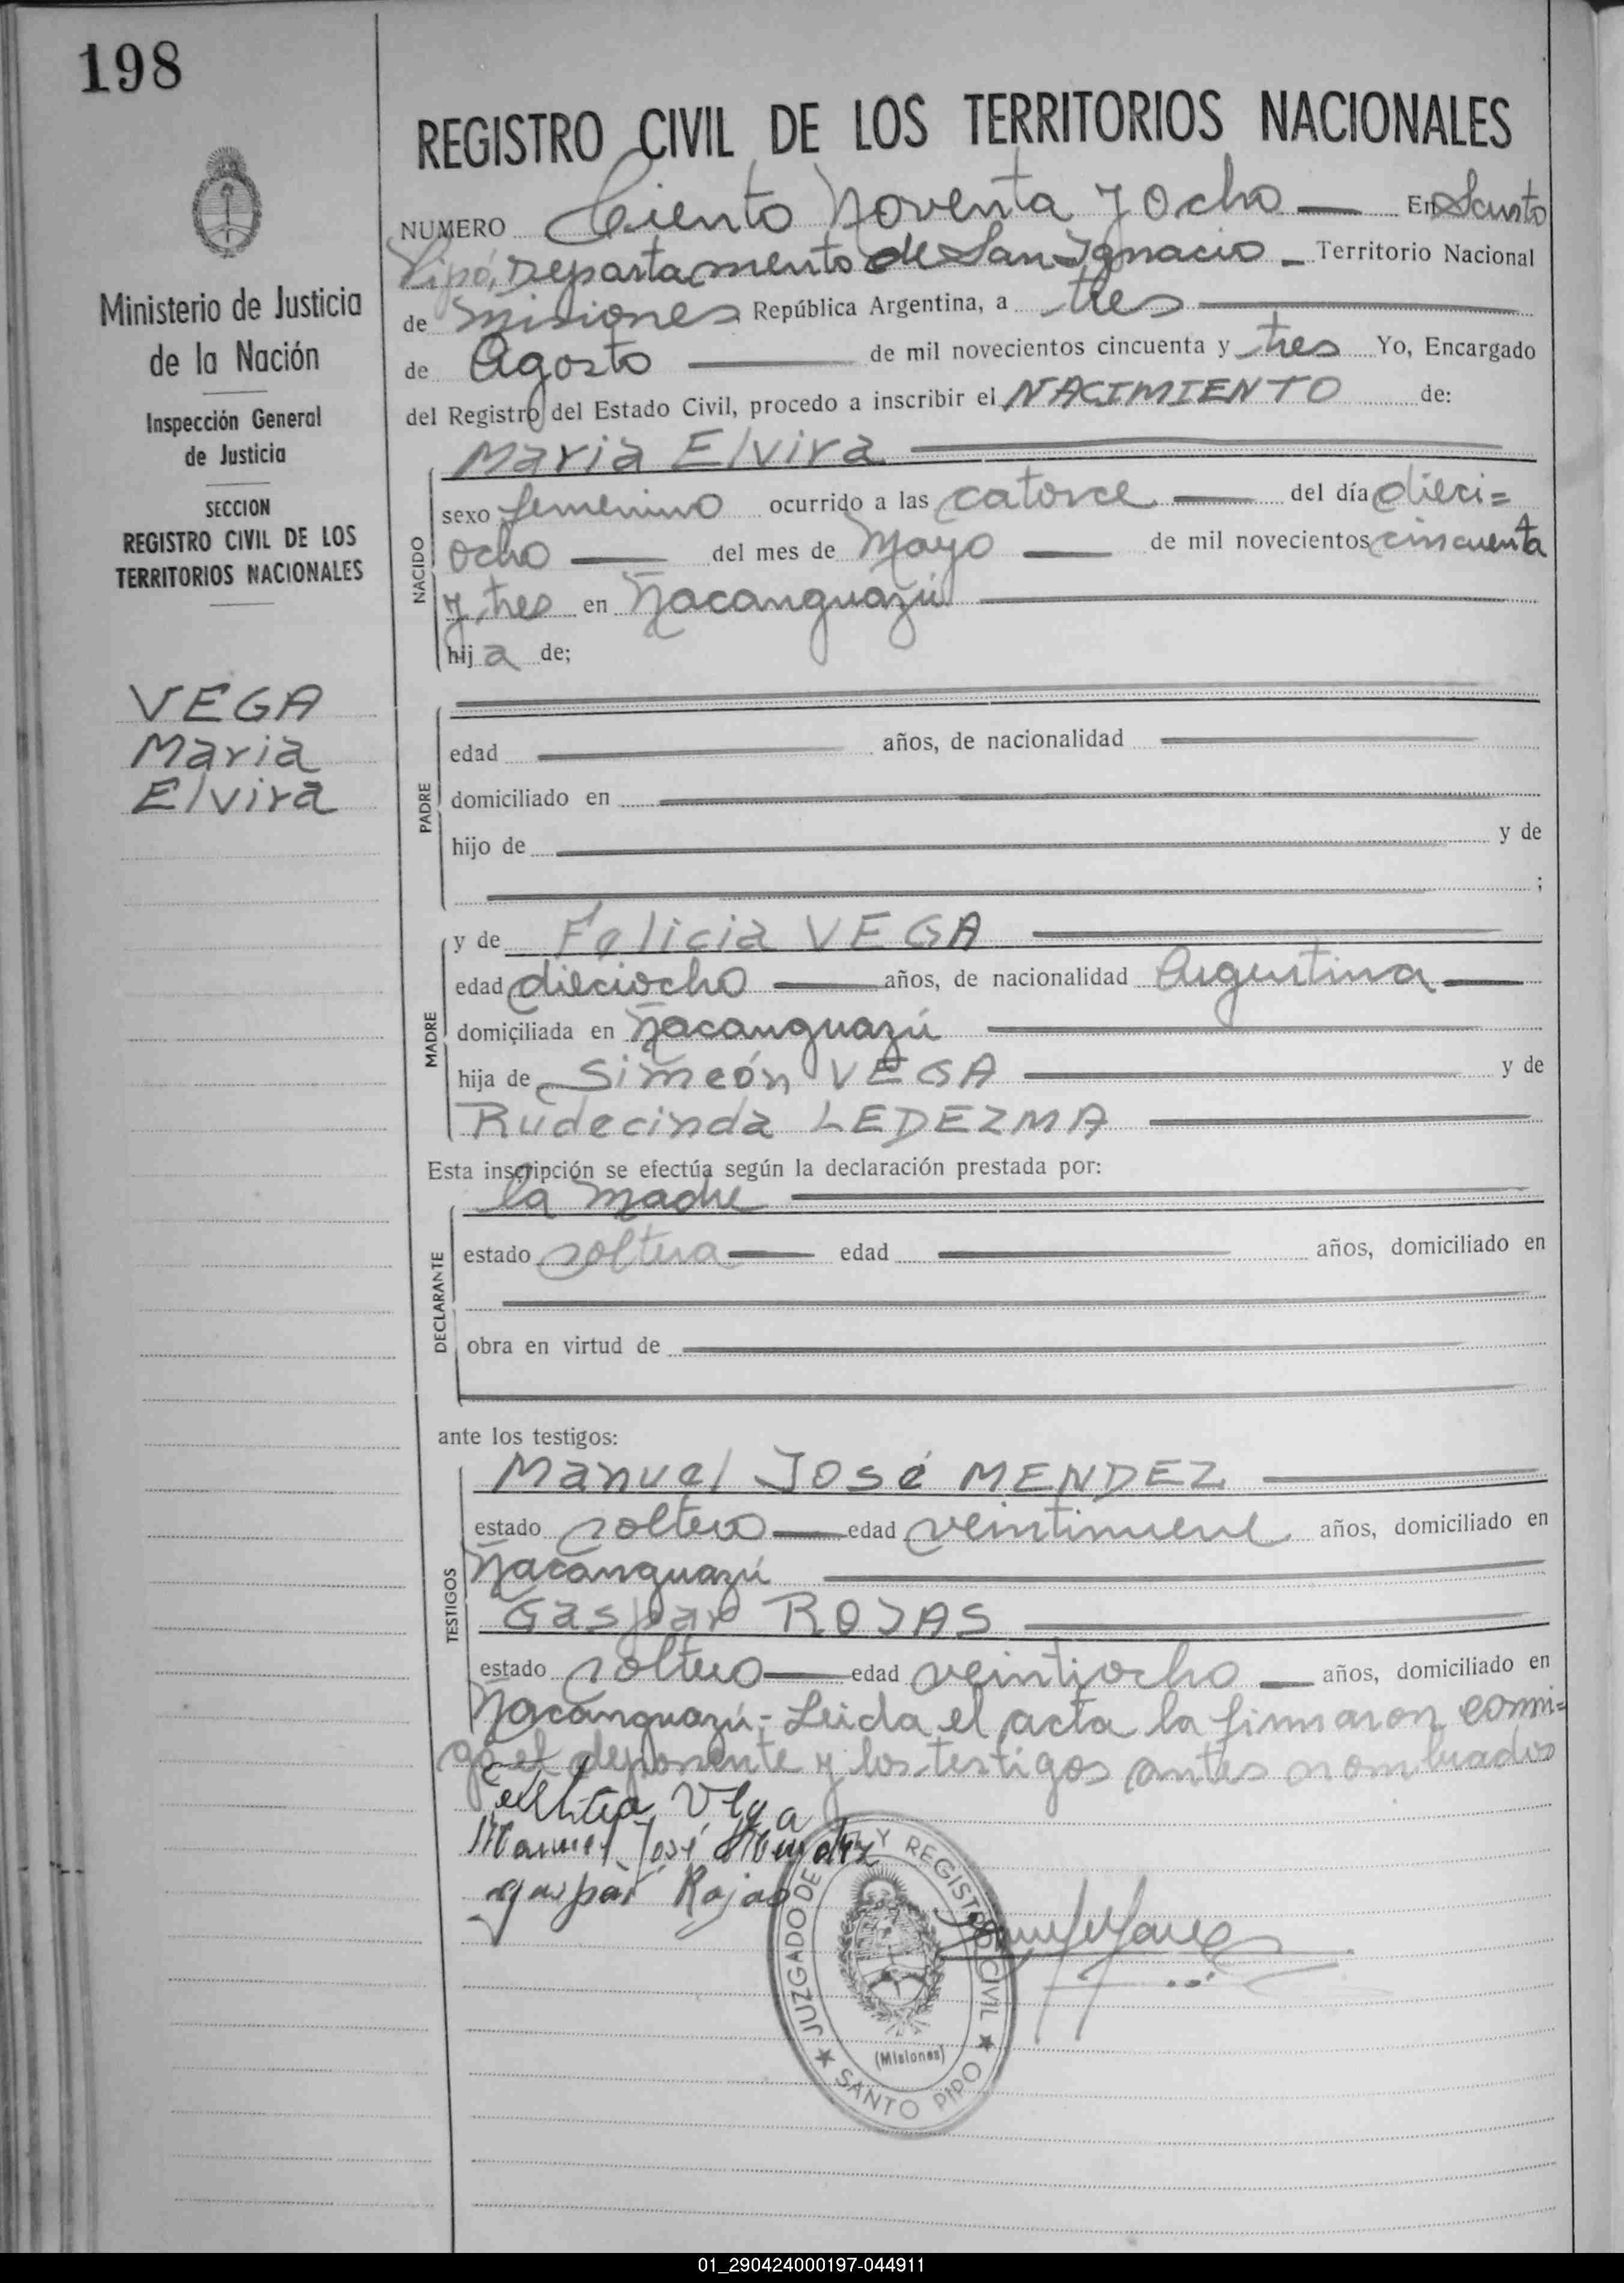 198
REGISTRO CIVIL DE LOS TERRITORIOS NACIONALES
Ministerio de Justicia
de la Nación
Inspección General
de Justicia
SECCION
REGISTRO CIVIL DE LOS
TERRITORIOS NACIONALES
VEGA
Maria
Elvira
NUMERO Ciento Noventa y Ocho — En Santo
Pipó, Departamento de San Ignacio — Territorio Nacional
de Misiones República Argentina, a tres
de Agosto — de mil novecientos cincuenta y tres Yo, Encargado
del Registro del Estado Civil, procedo a inscribir el NACIMIENTO de:
Maria Elvira
NACIDO
sexo femenino ocurrido a las catorce — del día dieci=
ocho — del mes de Mayo — de mil novecientos cincuenta
y tres en Ñacanguazú
hija de;
PADRE
edad años, de nacionalidad
domiciliado en
hijo de y de
;
MADRE
y de Felicia VEGA
edad dieciocho — años, de nacionalidad Argentina —
domiciliada en Ñacanguazú
hija de Simeón VEGA y de
Rudecinda LEDEZMA
Esta inscripción se efectúa según la declaración prestada por:
la madre
DECLARANTE
estado soltera — edad años, domiciliado en
obra en virtud de
ante los testigos:
TESTIGOS
Manuel José MENDEZ
estado soltero — edad veintinueve años, domiciliado en
Ñacanguazú
Gaspar ROJAS
estado soltero — edad veintiocho — años, domiciliado en
Ñacanguazú.- Leida el acta la firmaron conmi=
go el deponente y los testigos antes nombrados
Vega
Manuel José Mendez
gaspar Rojas
JUZGADO DE Y REGISTRO CIVIL
(Misiones)
★ SANTO PIPO ★
01_290424000197-044911